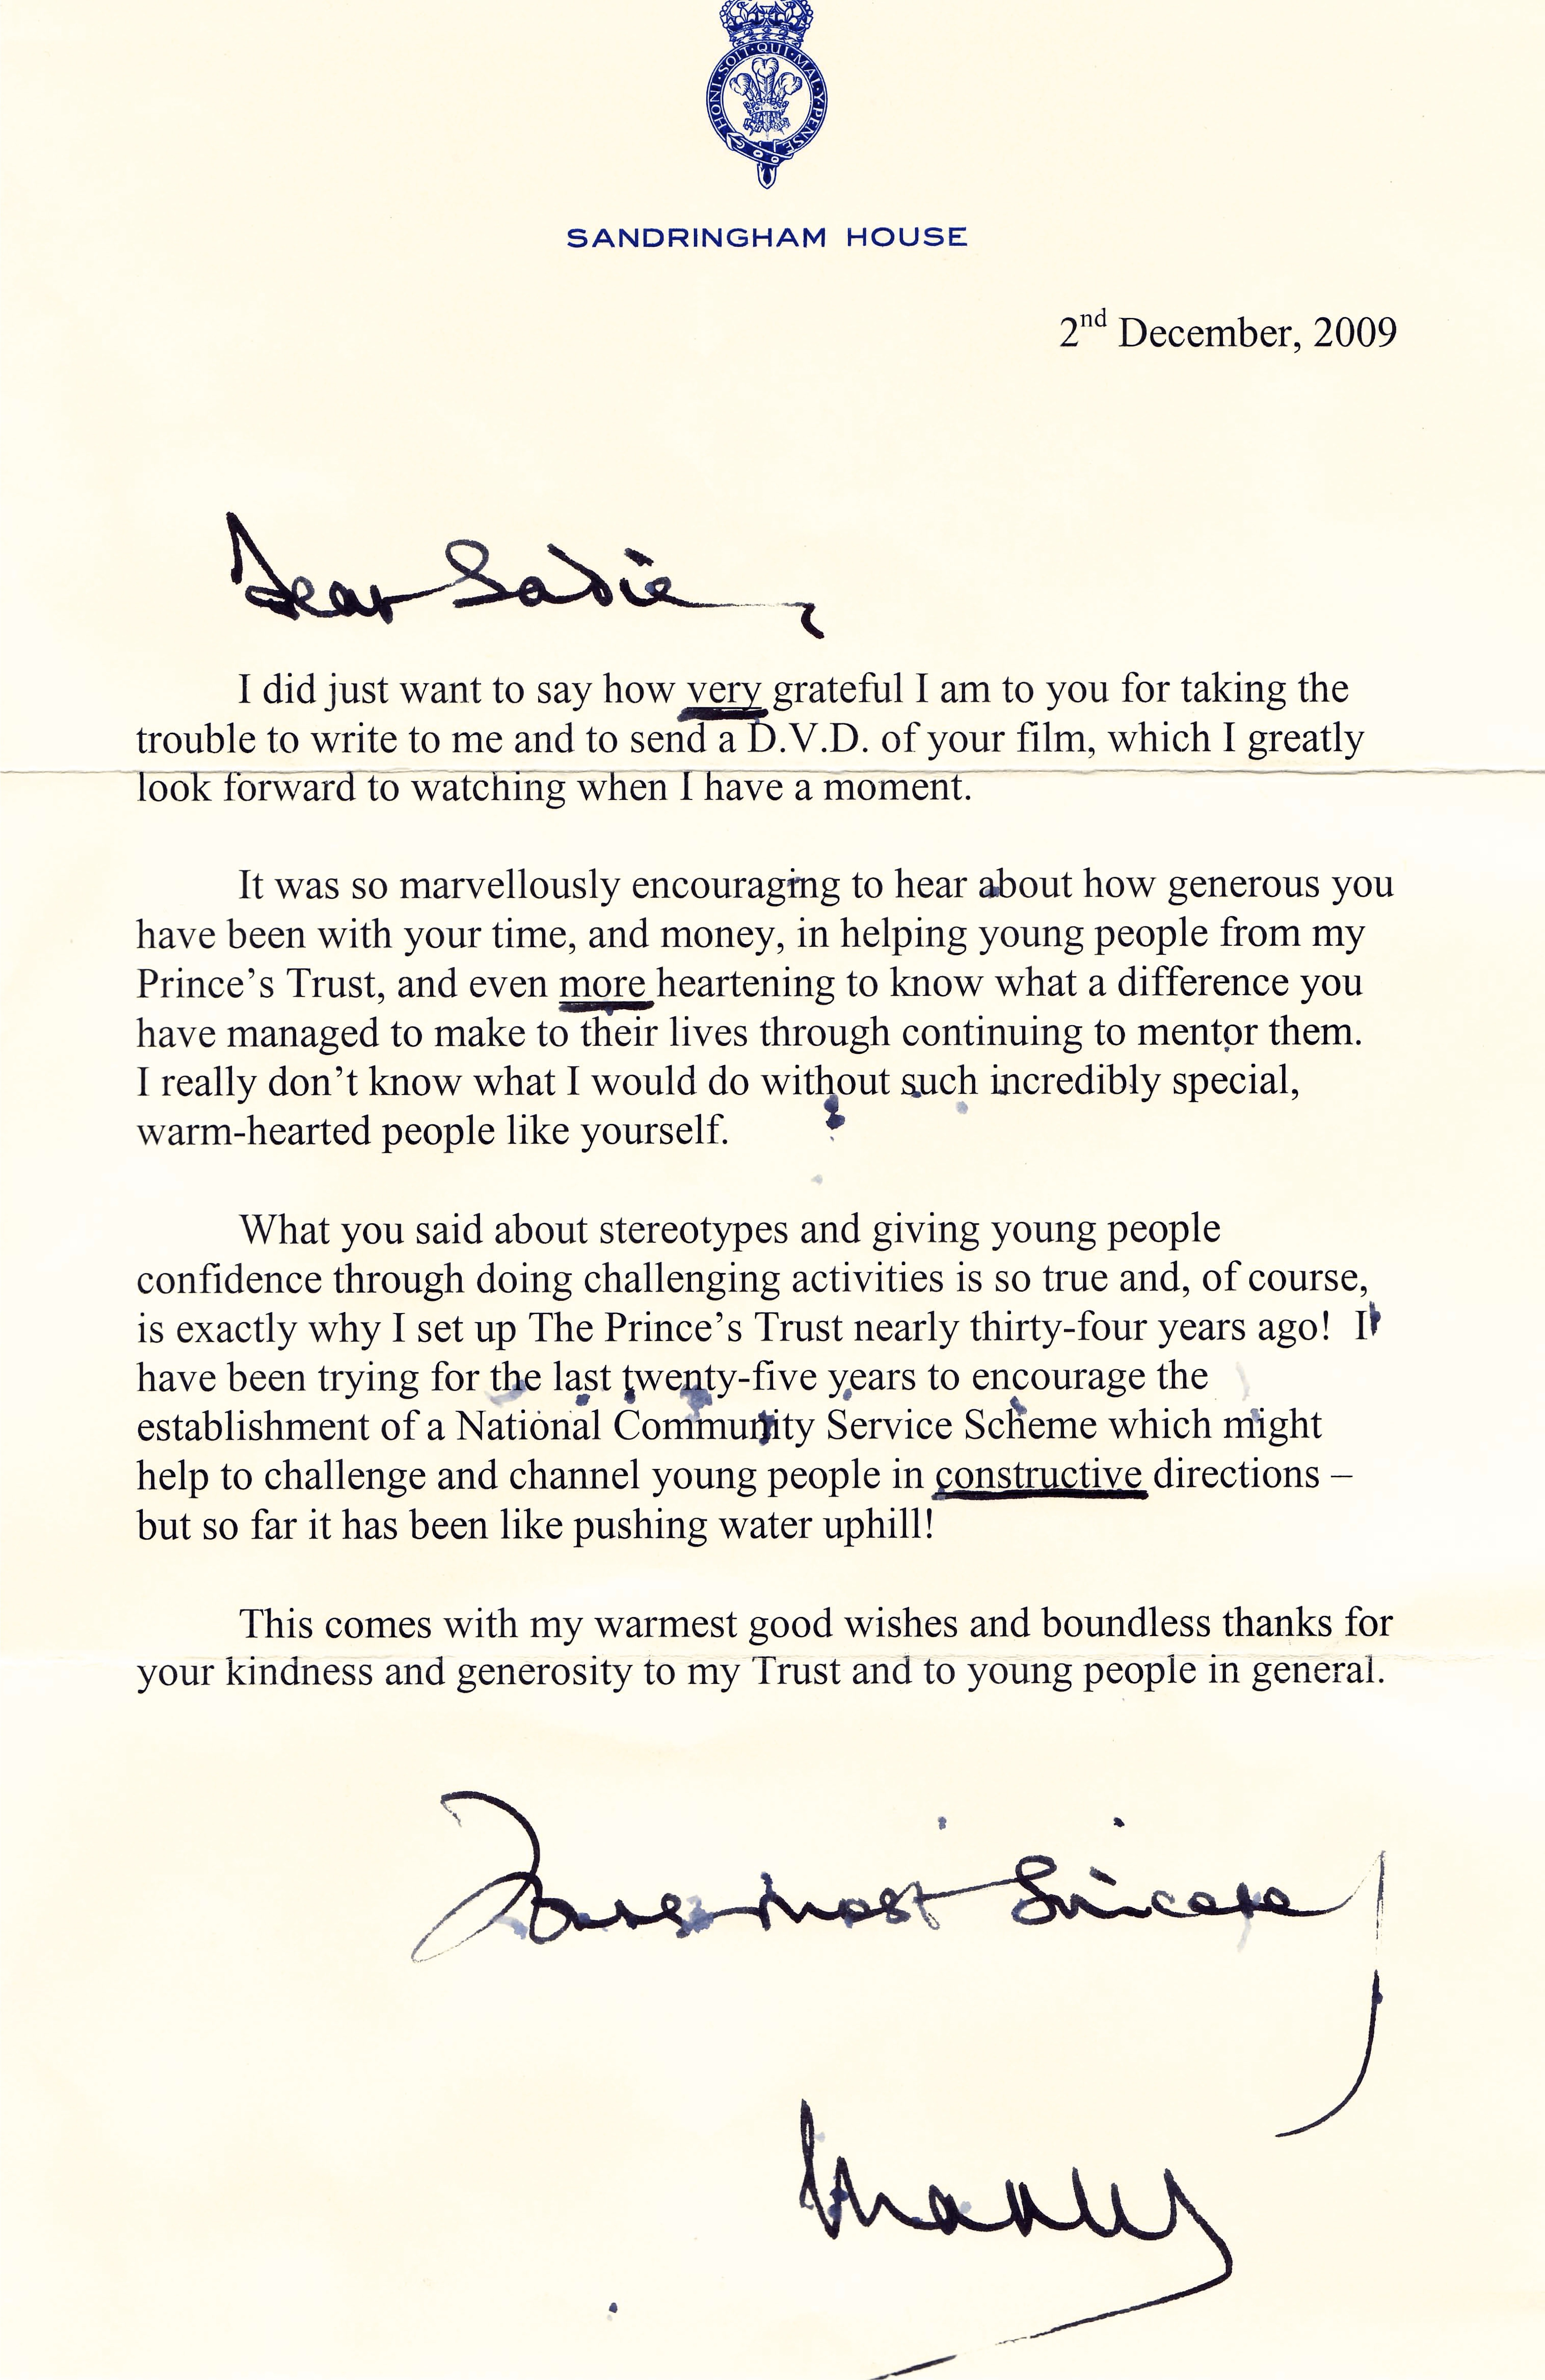 HONI·SOIT·QUI·MAL·Y·PENSE
SANDRINGHAM HOUSE
2nd December, 2009
Dear Sadie,
I did just want to say how very grateful I am to you for taking the
trouble to write to me and to send a D.V.D. of your film, which I greatly
look forward to watching when I have a moment.
It was so marvellously encouraging to hear about how generous you
have been with your time, and money, in helping young people from my
Prince's Trust, and even more heartening to know what a difference you
have managed to make to their lives through continuing to mentor them.
I really don't know what I would do without such incredibly special,
warm-hearted people like yourself.
What you said about stereotypes and giving young people
confidence through doing challenging activities is so true and, of course,
is exactly why I set up The Prince's Trust nearly thirty-four years ago! I
have been trying for the last twenty-five years to encourage the
establishment of a National Community Service Scheme which might
help to challenge and channel young people in constructive directions –
but so far it has been like pushing water uphill!
This comes with my warmest good wishes and boundless thanks for
your kindness and generosity to my Trust and to young people in general.
Yours most sincerely
Charles